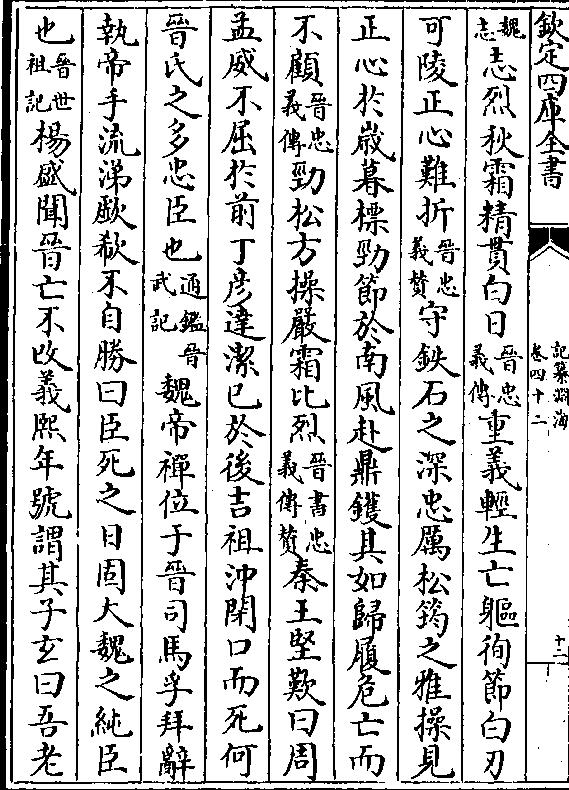 欽定四庫全書
記纂淵海
卷四十二
十二
魏志志烈秋霜精貫白日晉忠義傳重義輕生亡軀徇節白刃
可陵正心難折晉忠義贊守鉄石之深忠厲松筠之雅操見
正心於嵗暮標勁節於南風赴鼎鑊其如歸履危亡而
不顧晉忠義傳勁松方操嚴霜比烈晉書忠義傳贊秦王堅歎曰周
孟威不屈於前丁彦逹潔已於後吉祖沖閉口而死何
晉氏之多忠臣也通鑑晉武記魏帝禪位于晉司馬孚拜辭
執帝手流涕歔欷不自勝曰臣死之日固大魏之純臣
也晉世祖記楊盛聞晉亡不改義熙年號謂其子玄曰吾老